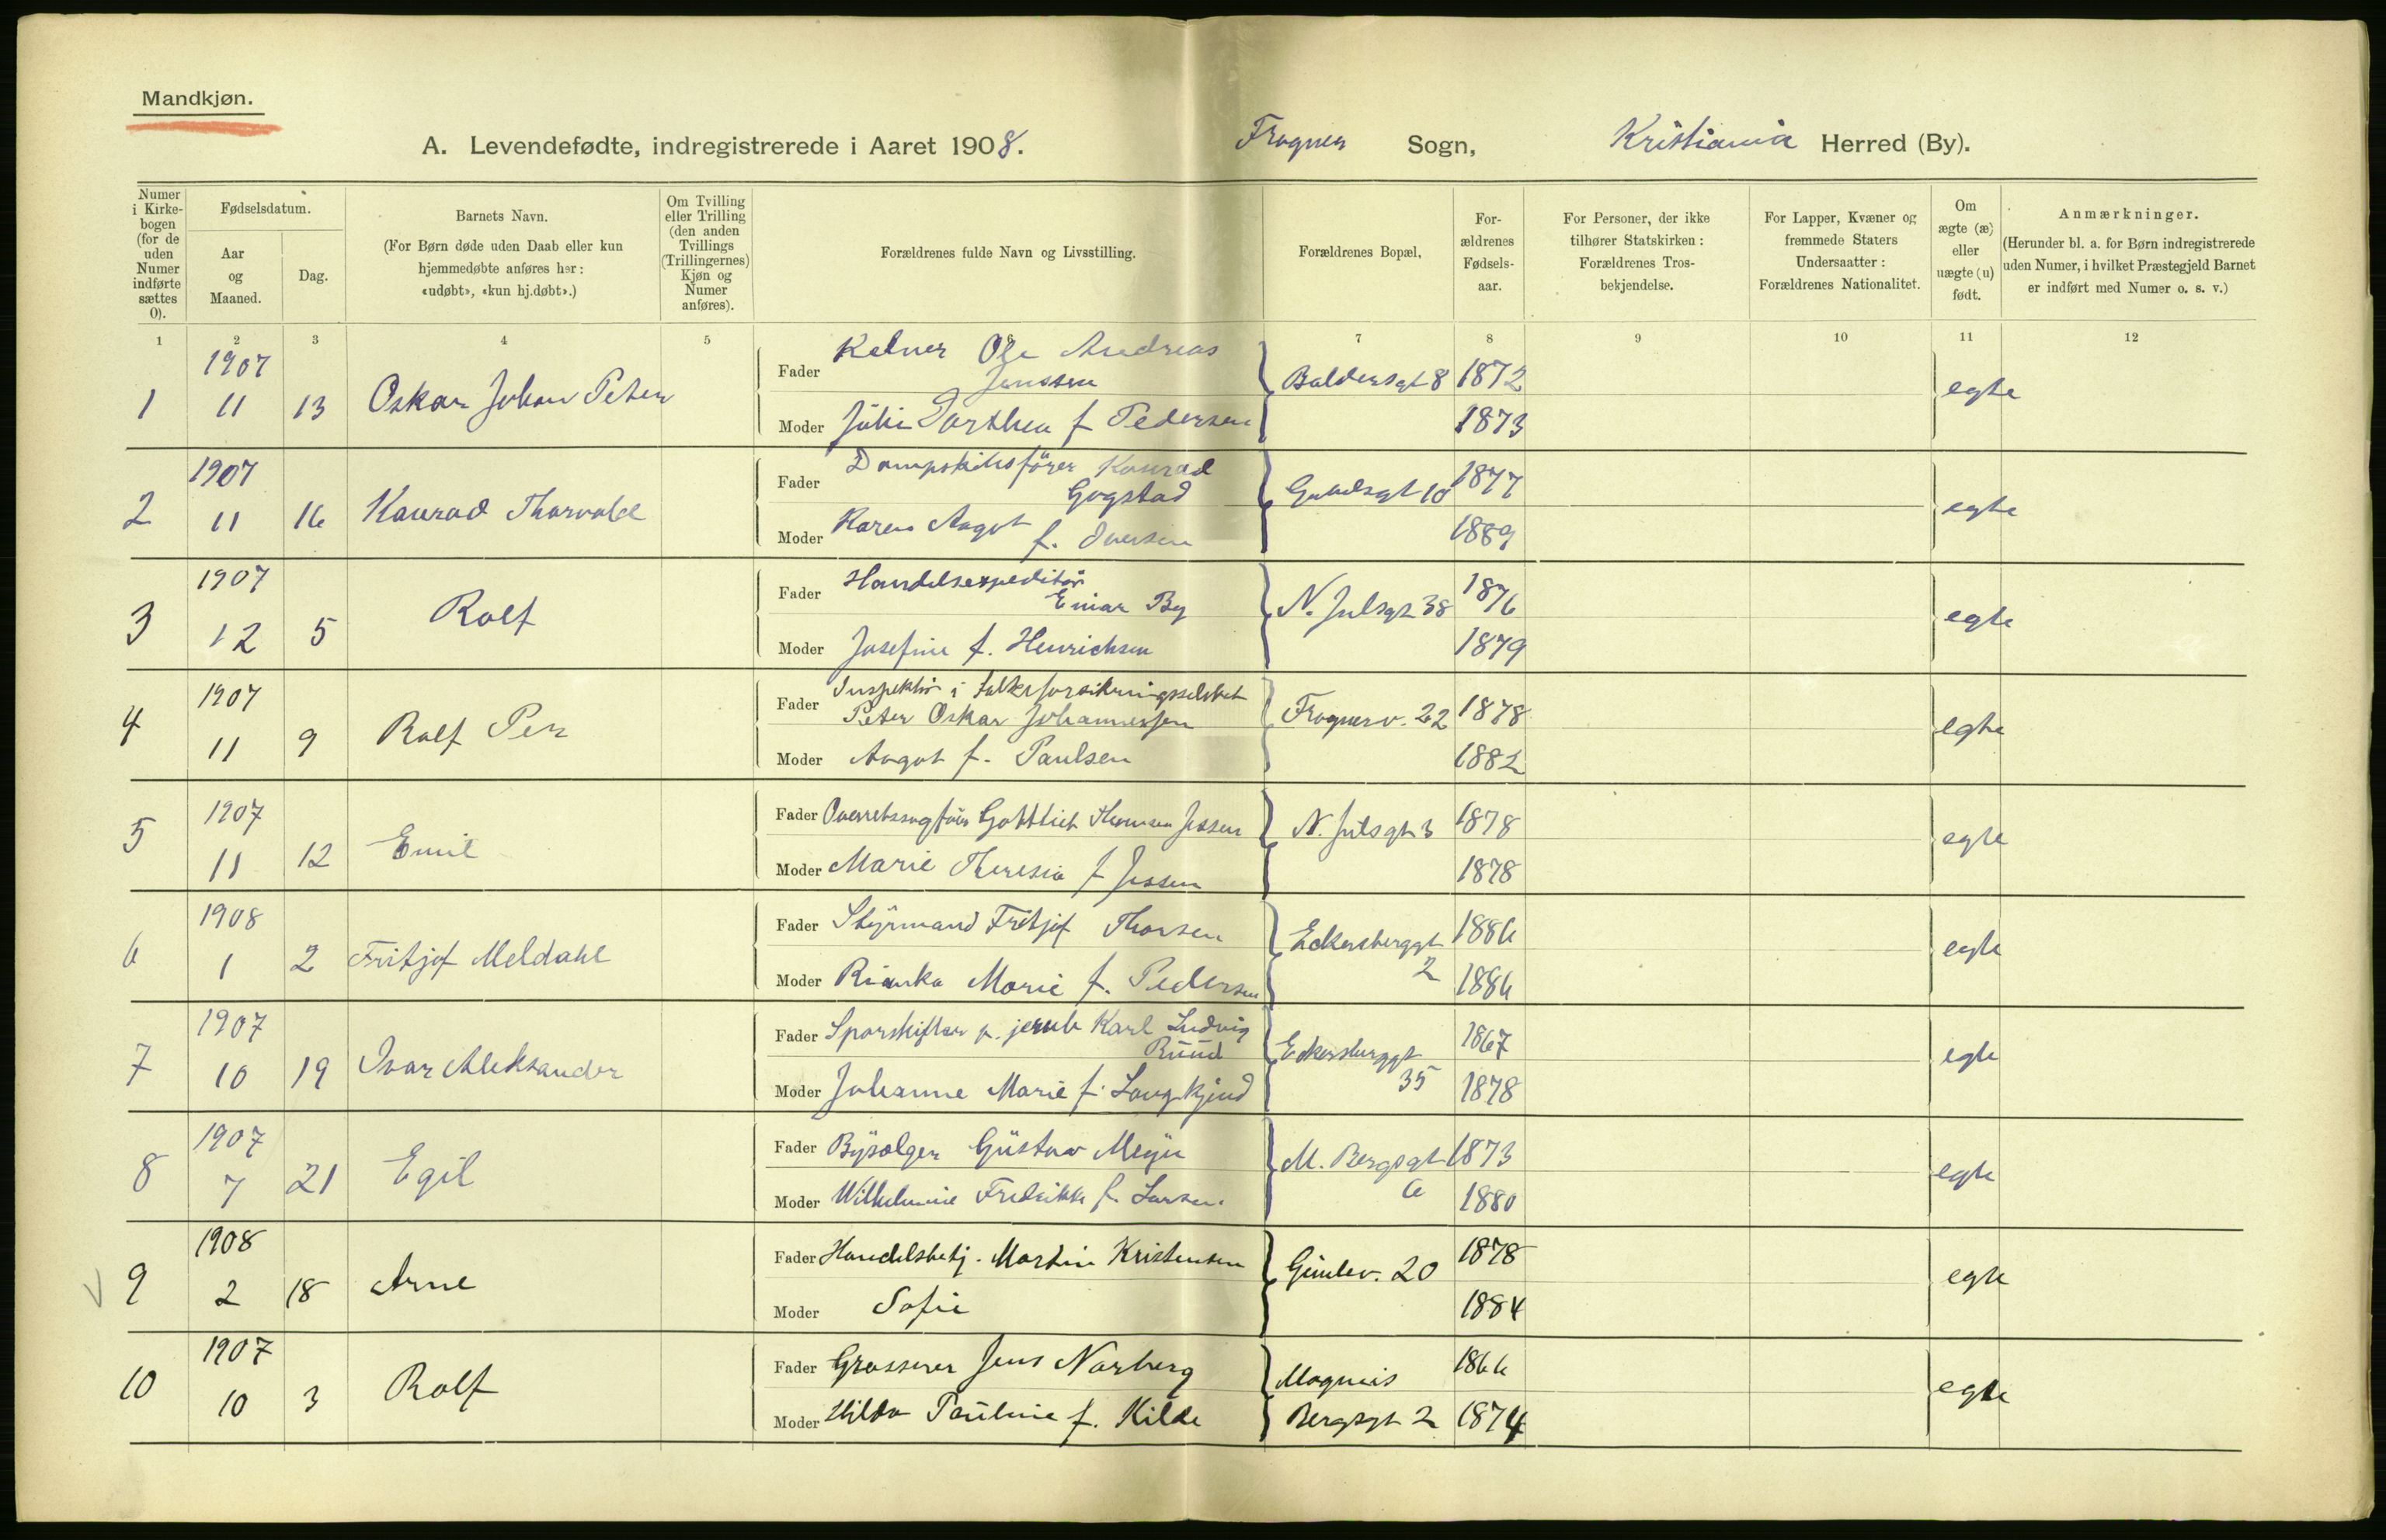 Mandkjøn.
A. Levendefødte, indregistrerede i Aaret 1908. Frogner Sogn, Kristiania Herred (By).
Numer i Kirkebogen (for de uden Numer indførte sættes 0).
Fødselsdatum.
Aar og Maaned.
Dag.
Barnets Navn.
(For Børn døde uden Daab eller kun hjemmedøbte anføres her: «udøbt», «kun hj.døbt».)
Om Tvilling eller Trilling (den anden Tvillings (Trillingernes) Kjøn og Numer anføres).
Forældrenes fulde Navn og Livsstilling.
Forældrenes Bopæl,
Forældrenes Fødselsaar.
For Personer, der ikke tilhører Statskirken: Forældrenes Trosbekjendelse.
For Lapper, Kvæner og fremmede Staters Undersaatter: Forældrenes Nationalitet.
Om ægte (æ) eller uægte (u) født.
Anmærkninger.
(Herunder bl. a. for Børn indregistrerede uden Numer, i hvilket Præstegjeld Barnet er indført med Numer o. s. v.)
1 2 3 4 5 7 8 9 10 11 12
1 1907 11 13 Oskar Johan Peter
Fader Kelner Ole Andreas Jenssen Baldersgt 8 1872 egte
Moder Julie Dorthea f Pedersen 1873
2 1907 11 16 Konrad Thorvald
Fader Dampskibsfører Konrad Gogstad 10 1877 egte
Moder Karen Aagot f. Iversen 1889
3 1907 12 5 Rolf
Fader Handelsexpeditør Einar By N. Julsgt 38 1876 egte
Moder Josefine f. Henrichsen 1879
4 1907 11 9 Rolf Per
Fader Inspektør i Peter Oskar Johannessen Frognerv. 22 1878 egte
Moder Aagot f. Paulsen 1882
5 1907 11 12 Emil
Fader Overretssagfører Gottlieb Jessen N. Julsgt 3 1878 egte
Moder Marie Theresia f Jessen 1878
6 1908 1 2 Fritjof Meldahl
Fader Styrmand Fritjof Thorsen Eckersberggt 2 1886 egte
Moder Marie f. Pedersen 1886
7 1907 10 19 Ivar Aleksander
Fader Sporskifter v. jernb Karl Ludvig Ruud Eckersberggt 35 1867 egte
Moder Johanne Marie f. 1878
8 1907 7 21 Egil
Fader Bysælger Gustav Meyer M. Bergsgt 6 1873 egte
Moder Wilhelmine Fredrikke f. Larsen 1880
9 1908 2 18 Arne
Fader Handelsbetj. Martin Kristensen Gimlev. 20 1878 egte
Moder Sofie 1884
10 1907 10 3 Rolf
Fader Grosserer Jens Norberg Magnus Bergsgt 2 1866 egte
Moder Hilda Pauline f. Kilde 1874